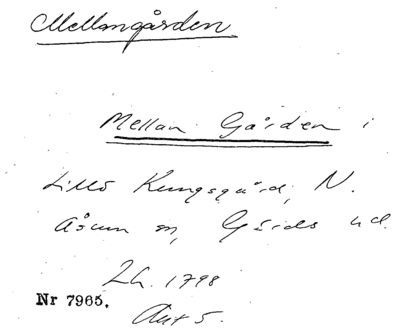 Mellangården
Mellan Gården i
Lillö Kungsgård, N.
Åsum sn, Gärds hd.
Lh. 1798
Nr 7965.
Akt 5.